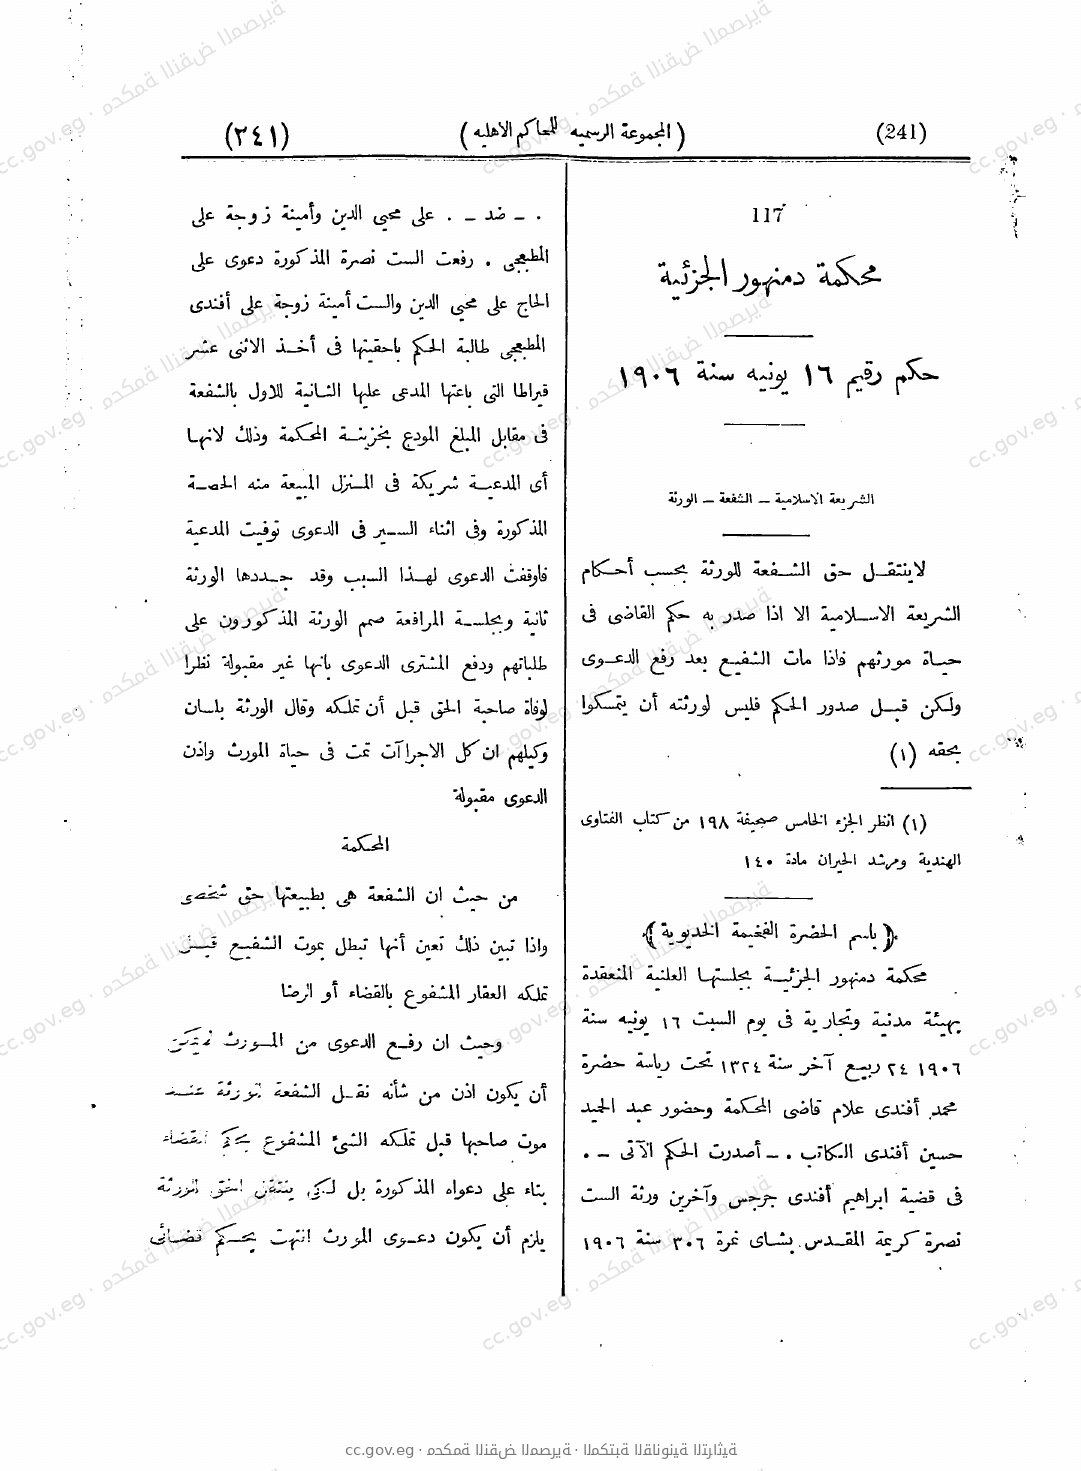 (241) (المجموعة الرسميه للمحاكم الاهليه) (٢٤١)
117
محكمة دمنهور الجزئية
حكم رقيم ١٦ يونيه سنة ١٩٠٦
الشريعة الاسلامية ــ الشفعة ــ الورثة
لاينتقل حق الشفعة للورثة بحسب أحكام
الشريعة الاسلامية الا اذا صدر به حكم القاضى فى
حياة مورثهم فاذا مات الشفيع بعد رفع الدعوى
ولكن قبل صدور الحكم فليس لورثته أن يتمسكوا
بحقه (١)
(١) انظر الجزء الخامس صحيفة ١٩٨ من كتاب الفتاوى
الهندية ومرشد الحيران مادة ١٤٠
﴿باسم الحضرة الفخيمة الخديوية﴾
محكمة دمنهور الجزئية بجلستها العلنية المنعقدة
بهيئة مدنية وتجارية فى يوم السبت ١٦ يونيه سنة
١٩٠٦ ٢٤ ربيع آخر سنة ١٣٢٤ تحت رياسة حضرة
محمد أفندى علام قاضى المحكمة وحضور عبد المجيد
حسين أفندى الكاتب . ــ أصدرت الحكم الآتى ــ .
فى قضية ابراهيم أفندى جرجس وآخرين ورثة الست
نصرة كريمة المقدس بشاى نمرة ٣٠٦ سنة ١٩٠٦
. ــ ضد ــ . على محيى الدين وأمينة زوجة على
المطبعجى . رفعت الست نصرة المذكورة دعوى على
الحاج على محيى الدين والست أمينة زوجة على أفندى
المطبعجى طالبة الحكم باحقيتها فى أخذ الاثنى عشر
قيراطا التى باعتها المدعى عليها الثانية للاول بالشفعة
فى مقابل المبلغ المودع بخزينة المحكمة وذلك لانها
أى المدعية شريكة فى المنزل المبيعة منه الحصة
المذكورة وفى اثناء السير فى الدعوى توفيت المدعية
فاوقفت الدعوى لهذا السبب وقد جددها الورثة
ثانية وبجلسة المرافعة صمم الورثة المذكورون على
طلباتهم ودفع المشترى الدعوى بانها غير مقبولة نظرا
لوفاة صاحبة الحق قبل أن تملكه وقال الورثة بلسان
وكيلهم ان كل الاجراآت تمت فى حياة المورث واذن
الدعوى مقبولة
المحكمة
من حيث ان الشفعة هى بطبيعتها حق شخصى
واذا تبين ذلك تعين أنها تبطل بموت الشفيع قبل
تملكه العقار المشفوع بالقضاء أو الرضا
وحيث ان رفع الدعوى من المورث
أن يكون اذن من شأنه نقل الشفعة للورثة عند
موت صاحبها قبل تملكه الشئ المشفوع بحكم القضاء
بناء على دعواه المذكورة بل لكى ينتقل الحق للورثة
يلزم أن يكون دعوى المورث انتهت بحكم قضائى
cc.gov.eg · محكمة النقض المصرية · المكتبة القانونية التراثية